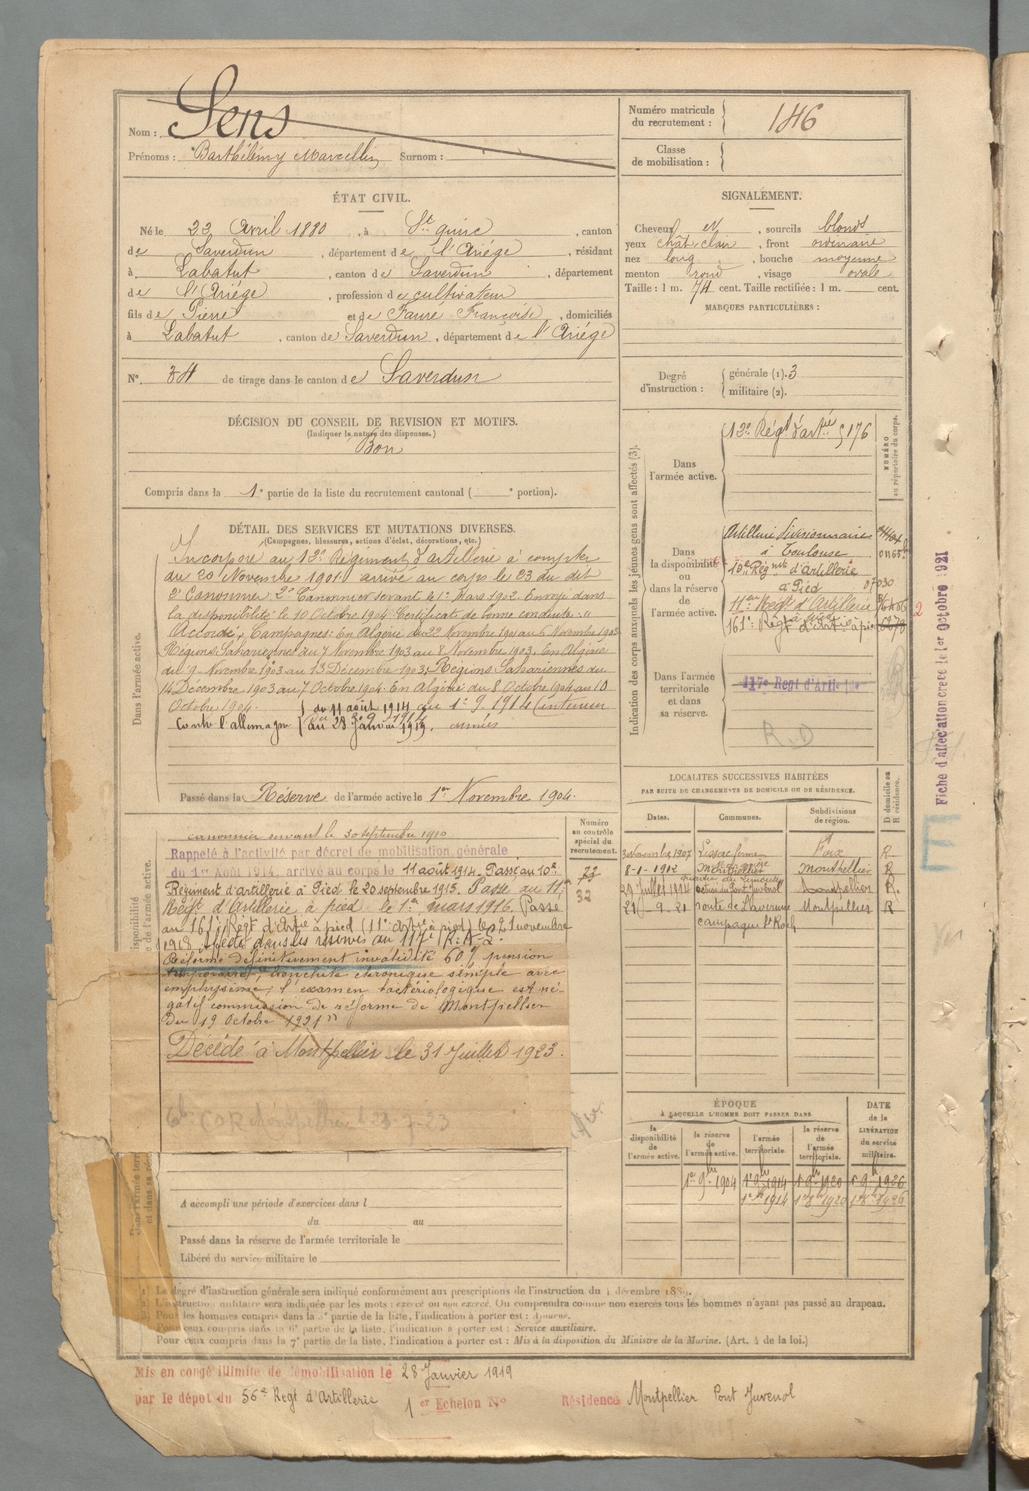 Nom : Sens
Prénoms : Barthélémy Marcellin Surnom :
Numéro matricule du recrutement : 146
Classe de mobilisation :
ÉTAT CIVIL.
Né le 22 Avril 1880, à St quirc, canton
de Saverdun, département de l'Ariége, résidant
à Labatut, canton de Saverdun, département
de l'Ariége, profession de cultivateur
fils de Pierre et de Faure Françoise, domiciliés
à Labatut, canton de Saverdun, département de l'Ariége
N°. 34 de tirage dans le canton de Saverdun
SIGNALEMENT.
Cheveux et, sourcils blonds
yeux chât. clair, front ordinaire
nez long, bouche moyenne
menton rond, visage ovale
Taille : 1 m. 74 cent. Taille rectifiée : 1 m. cent.
MARQUES PARTICULIÈRES :
Degré d'instruction : générale (1). 3
militaire (2).
DÉCISION DU CONSEIL DE REVISION ET MOTIFS.
(Indiquer la nature des dispenses.)
Bon
Compris dans la 1e partie de la liste du recrutement cantonal ( e portion).
DÉTAIL DES SERVICES ET MUTATIONS DIVERSES.
(Campagnes, blessures, actions d'éclat, décorations, etc.)
Dans l'armée active.
Incorporé au 12e Régiment d'artillerie à compter
du 20 Novembre 1901 arrivé au corps le 23 du dit
2e Canonnier. 2e Canonnier servant le 1er Mars 1902. Envoyé dans
la disponibilité le 10 Octobre 1904. Certificat de bonne conduite "
Accordé". Campagnes : En Algérie du 22 Novembre 1901 au 6 Novembre 1903
Régions Sahariennes du 7 Novembre 1903 au 8 Novembre 1903. En Algérie
du 9 Novembre 1903 au 13 Décembre 1903, Régions Sahariennes du
14 Décembre 1903 au 7 Octobre 1904. En Algérie du 8 Octobre 1904 au 10
Octobre 1904. du 11 août 1914 au 1-9 1914 (intérieur
Contre l'allemagne au 28 janvier 1919. armées
Passé dans la Réserve de l'armée active le 1er Novembre 1904.
Indication des corps auxquels les jeunes gens sont affectés (3).
NUMÉRO au répertoire du corps.
Dans l'armée active.
12e Régt d'artie 176
Dans la disponibilité ou dans la réserve de l'armée active.
Artillerie Divisionnaire
à Toulouse
10e Régnt d'Artillerie
à Pied
11ème Régt d'Artillerie
161e Régt d'artie à pied
Dans l'armée territoriale et dans sa réserve.
117e Regt d'Artillerie
R.D
Fiche d'affectation créée le 1er Octobre 1921
LOCALITES SUCCESSIVES HABITÉES
PAR SUITE DE CHANGEMENTS DE DOMICILE OU DE RÉSIDENCE.
Dates. Communes. Subdivisions de région. D domicile ou R résidence.
3 Novembre 1907 Lissac Foix R
8-1-1912 Montpellier Montpellier R
29 Juillet 1914 Montpellier R.
21-9-21 route de Laverune Montpellier R
campagne St Roch
Numéro au contrôle spécial du recrutement.
32
canonnier servant le 30 septembre 1910
Rappelé à l'activité par décret de mobilisation générale
du 1er Août 1914, arrivé au corps le 11 août 1914. Passé au 10e
Régiment d'artillerie à Pied le 20 septembre 1915. Passé au 11e
Régt d'Artillerie à pied le 1er mars 1916. Passé
au 161e Régt d'Artie à pied (11e artie à pied) le 21 novembre
1918. Passé dans les réserves au 117e R.A.L.
Réformé définitivement invalidité 60% pension
temporaire, bronchite chronique simple avec
emphysème, l'examen bactériologique est né-
gatif commission de réforme de Montpellier
du 19 Octobre 1921"
Décédé à Montpellier le 31 Juillet 1923.
ÉPOQUE
À LAQUELLE L'HOMME DOIT PASSER DANS
DATE de la LIBÉRATION du service militaire.
la disponibilité de l'armée active. la réserve de l'armée active. l'armée territoriale. la réserve de l'armée territoriale.
1er 9bre 1904 1er 9bre 1914 1er 9bre 1920 1er 9bre 1926
A accompli une période d'exercices dans l
du au
Passé dans la réserve de l'armée territoriale le
Libéré du service militaire le
Le degré d'instruction générale sera indiqué conformément aux prescriptions de l'instruction du 4 décembre 1889.
L'instruction militaire sera indiquée par les mots : exercé ou non exercé. On comprendra comme non exercés tous les hommes n'ayant pas passé au drapeau.
Pour les hommes compris dans la 5e partie de la liste, l'indication à porter est : Ajourné.
Pour ceux compris dans la 6e partie de la liste, l'indication à porter est : Service auxiliaire.
Pour ceux compris dans la 7e partie de la liste, l'indication à porter est : Mis à la disposition du Ministre de la Marine. (Art. 4 de la loi.)
Mis en congé illimité de démobilisation le 28 Janvier 1919
par le dépot du 56e Regt d'Artillerie 1er Echelon N° Résidence Montpellier Pont Juvenol